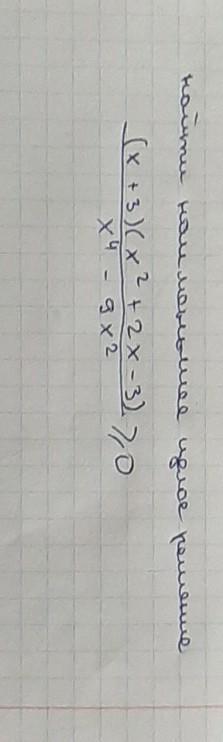 найти наименьшее целое решение
(x + 3)(x² + 2x - 3)
x⁴ - 9x²
≥ 0